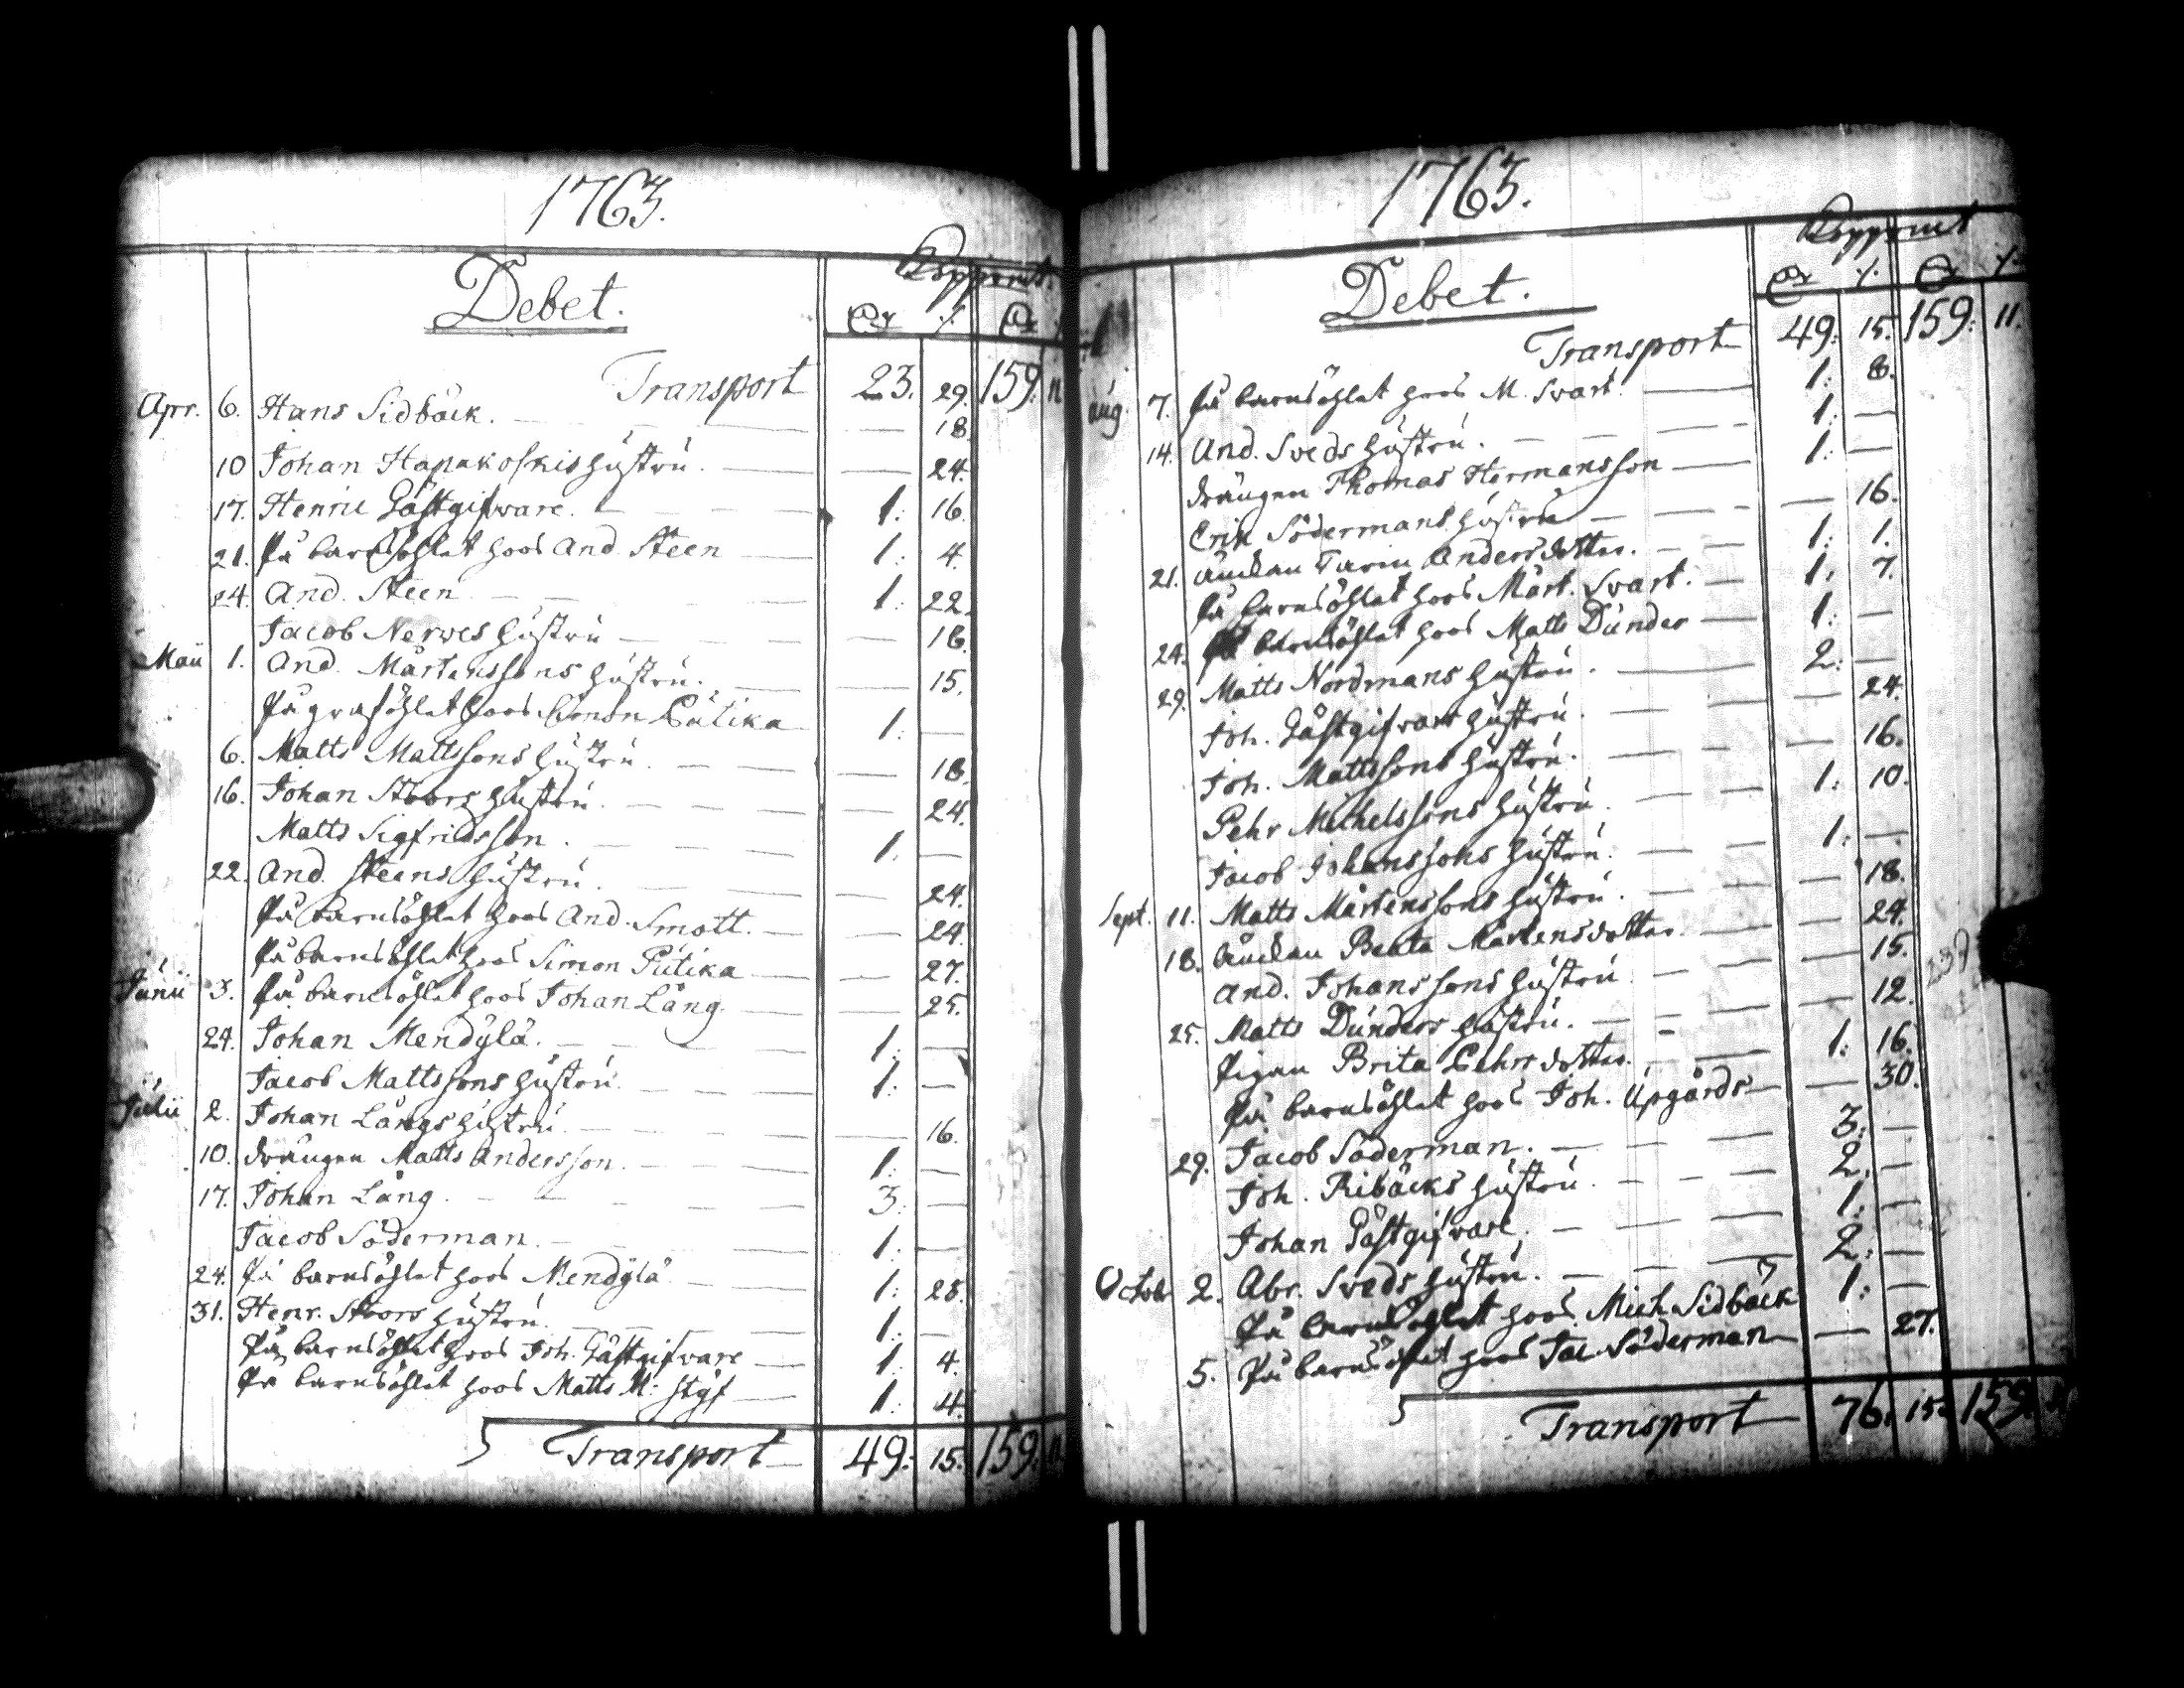 1763.
Kopp:mt.
Debet.
Transport 23. 29. 159. 11
Apr. 6. Hans Sidbäck. — 18.
10 Johan Hapakoskis hustru. — 24.
17. Henric Gästgifware. 1: 16.
21. På barnsöhlet hoos And. Steen 1: 4.
24. And. Steen 1: 22.
Jacob Nerwes hustru — 16.
Maii 1. And. Mårtenssons hustru. — 15.
På graföhlet hoos Simon Putika 1: —
6. Matts Mattssons hustru. — 18.
16. Johan Stoors hustru. — 24.
Matts Sigfridsson. 1: —
22. And. Steens hustru. — 24.
På barnsöhlet hoos And. Smått. — 24.
På barnsöhlet hoos Simon Putika — 27.
Junii 3. På barnsöhlet hoos Johan Lång. — 25.
24. Johan Mendÿlä. 1: —
Jacob Mattssons hustru 1: —
Julii 2. Johan Långs hustru. — 16.
10. drängen Matts Andersson. 1: —
17. Johan Lång. 3: —
Jacob Söderman. 1: —
24. På barnsöhlet hoos Mendÿlä 1: 28.
31. Henr. Stoors hustru. 1: —
På barnsöhlet hoos Joh. Gästgifvare 1: 4.
På barnsöhlet hoos Matts M: Styf 1: 4.
Transport 49: 15. 159. 11.
1763.
Kopp:mt
Debet.
Transport 49: 15. 159: 11.
Aug. 7. På barnsöhlet hoos M. Svart. 1: 8.
14. And. Sveds hustru. 1: —
drängen Thomas Hermansson 1: —
Erik Södermans hustru — 16.
21. änckan Carin Andersdotter. 1: 1.
På barnsöhlet hoos Mårt. Svart. 1: 7.
24. På barnsöhlet hoos Matts Dunder 1: —
29. Matts Nordmans hustru. 2: —
Joh. Gästgifvars hustru. — 24.
Joh. Mattssons hustru. — 16.
Pehr Michelssons hustru. 1: 10.
Jacob Johanssons hustru. 1: —
Sept. 11. Matts Mårtenssons hustru. — 18.
18. änckan Beata Mårtensdotter. — 24.
And. Johanssons hustru. — 15.
25. Matts Dunders hustru. — 12.
Pigan Brita Pehrsdotter. 1: 16.
På barnsöhlet hoos Joh. Upgårds — 30.
29. Jacob Söderman. 3: —
Joh. Ribäcks hustru. 2: —
Johan Gästgifvare. 1: —
Octob. 2. Abr. Sveds hustru. 2: —
På barnsöhlet hoos Mich. Sidbäck 1: —
5. På barnsöhlet hoos Jac. Söderman — 27.
Transport 76. 15. 159.